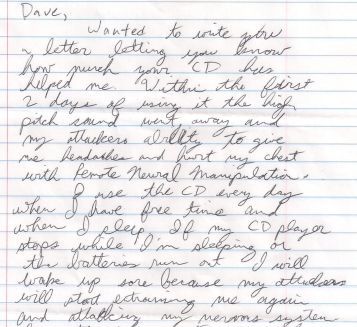 Dave,
Wanted to write you
a letter letting you know
how much your CD has
helped me. Within the first
2 days of using it the high
pitch sound went away and
my attackers ability to give
me headaches and hurt my chest
with Remote Neural Manipulation.
I use the CD every day
when I have free time and
when I sleep. If my CD player
stops while I'm sleeping or
the batteries run out I will
wake up sore because my attackers
will start straining me again
and attacking my nervous system